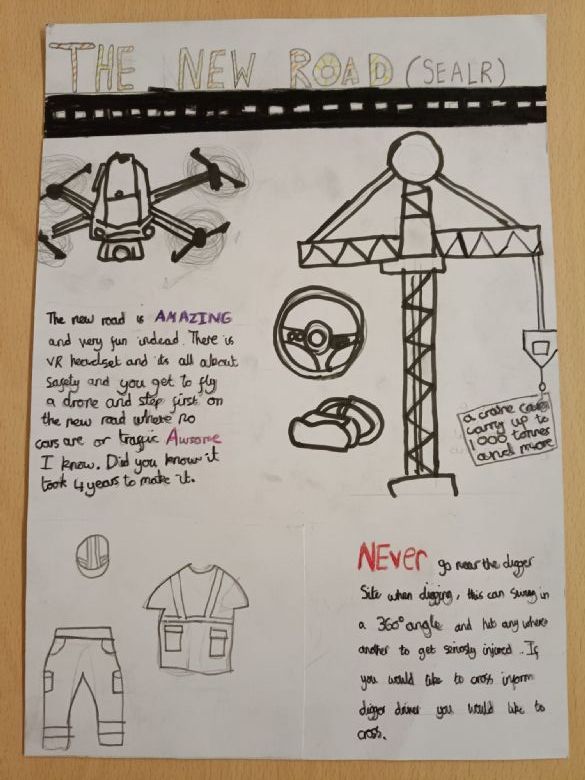 THE NEW ROAD (SEALR)
The new road is AMAZING
and very fun indead. There is
VR headset and its all about
safety and you get to fly
a drone and step first on
the new road where no
cars are or traffic Awsome
I know. Did you know it
took 4 years to make it.
a crane can
carry up to
1000 tonnes
and more
NEVer go near the digger
Site when digging, this can swing in
a 360° angle and hit any where
another to get seriosly injured.. If
you would like to cross inform
digger driver you would like to
cross.